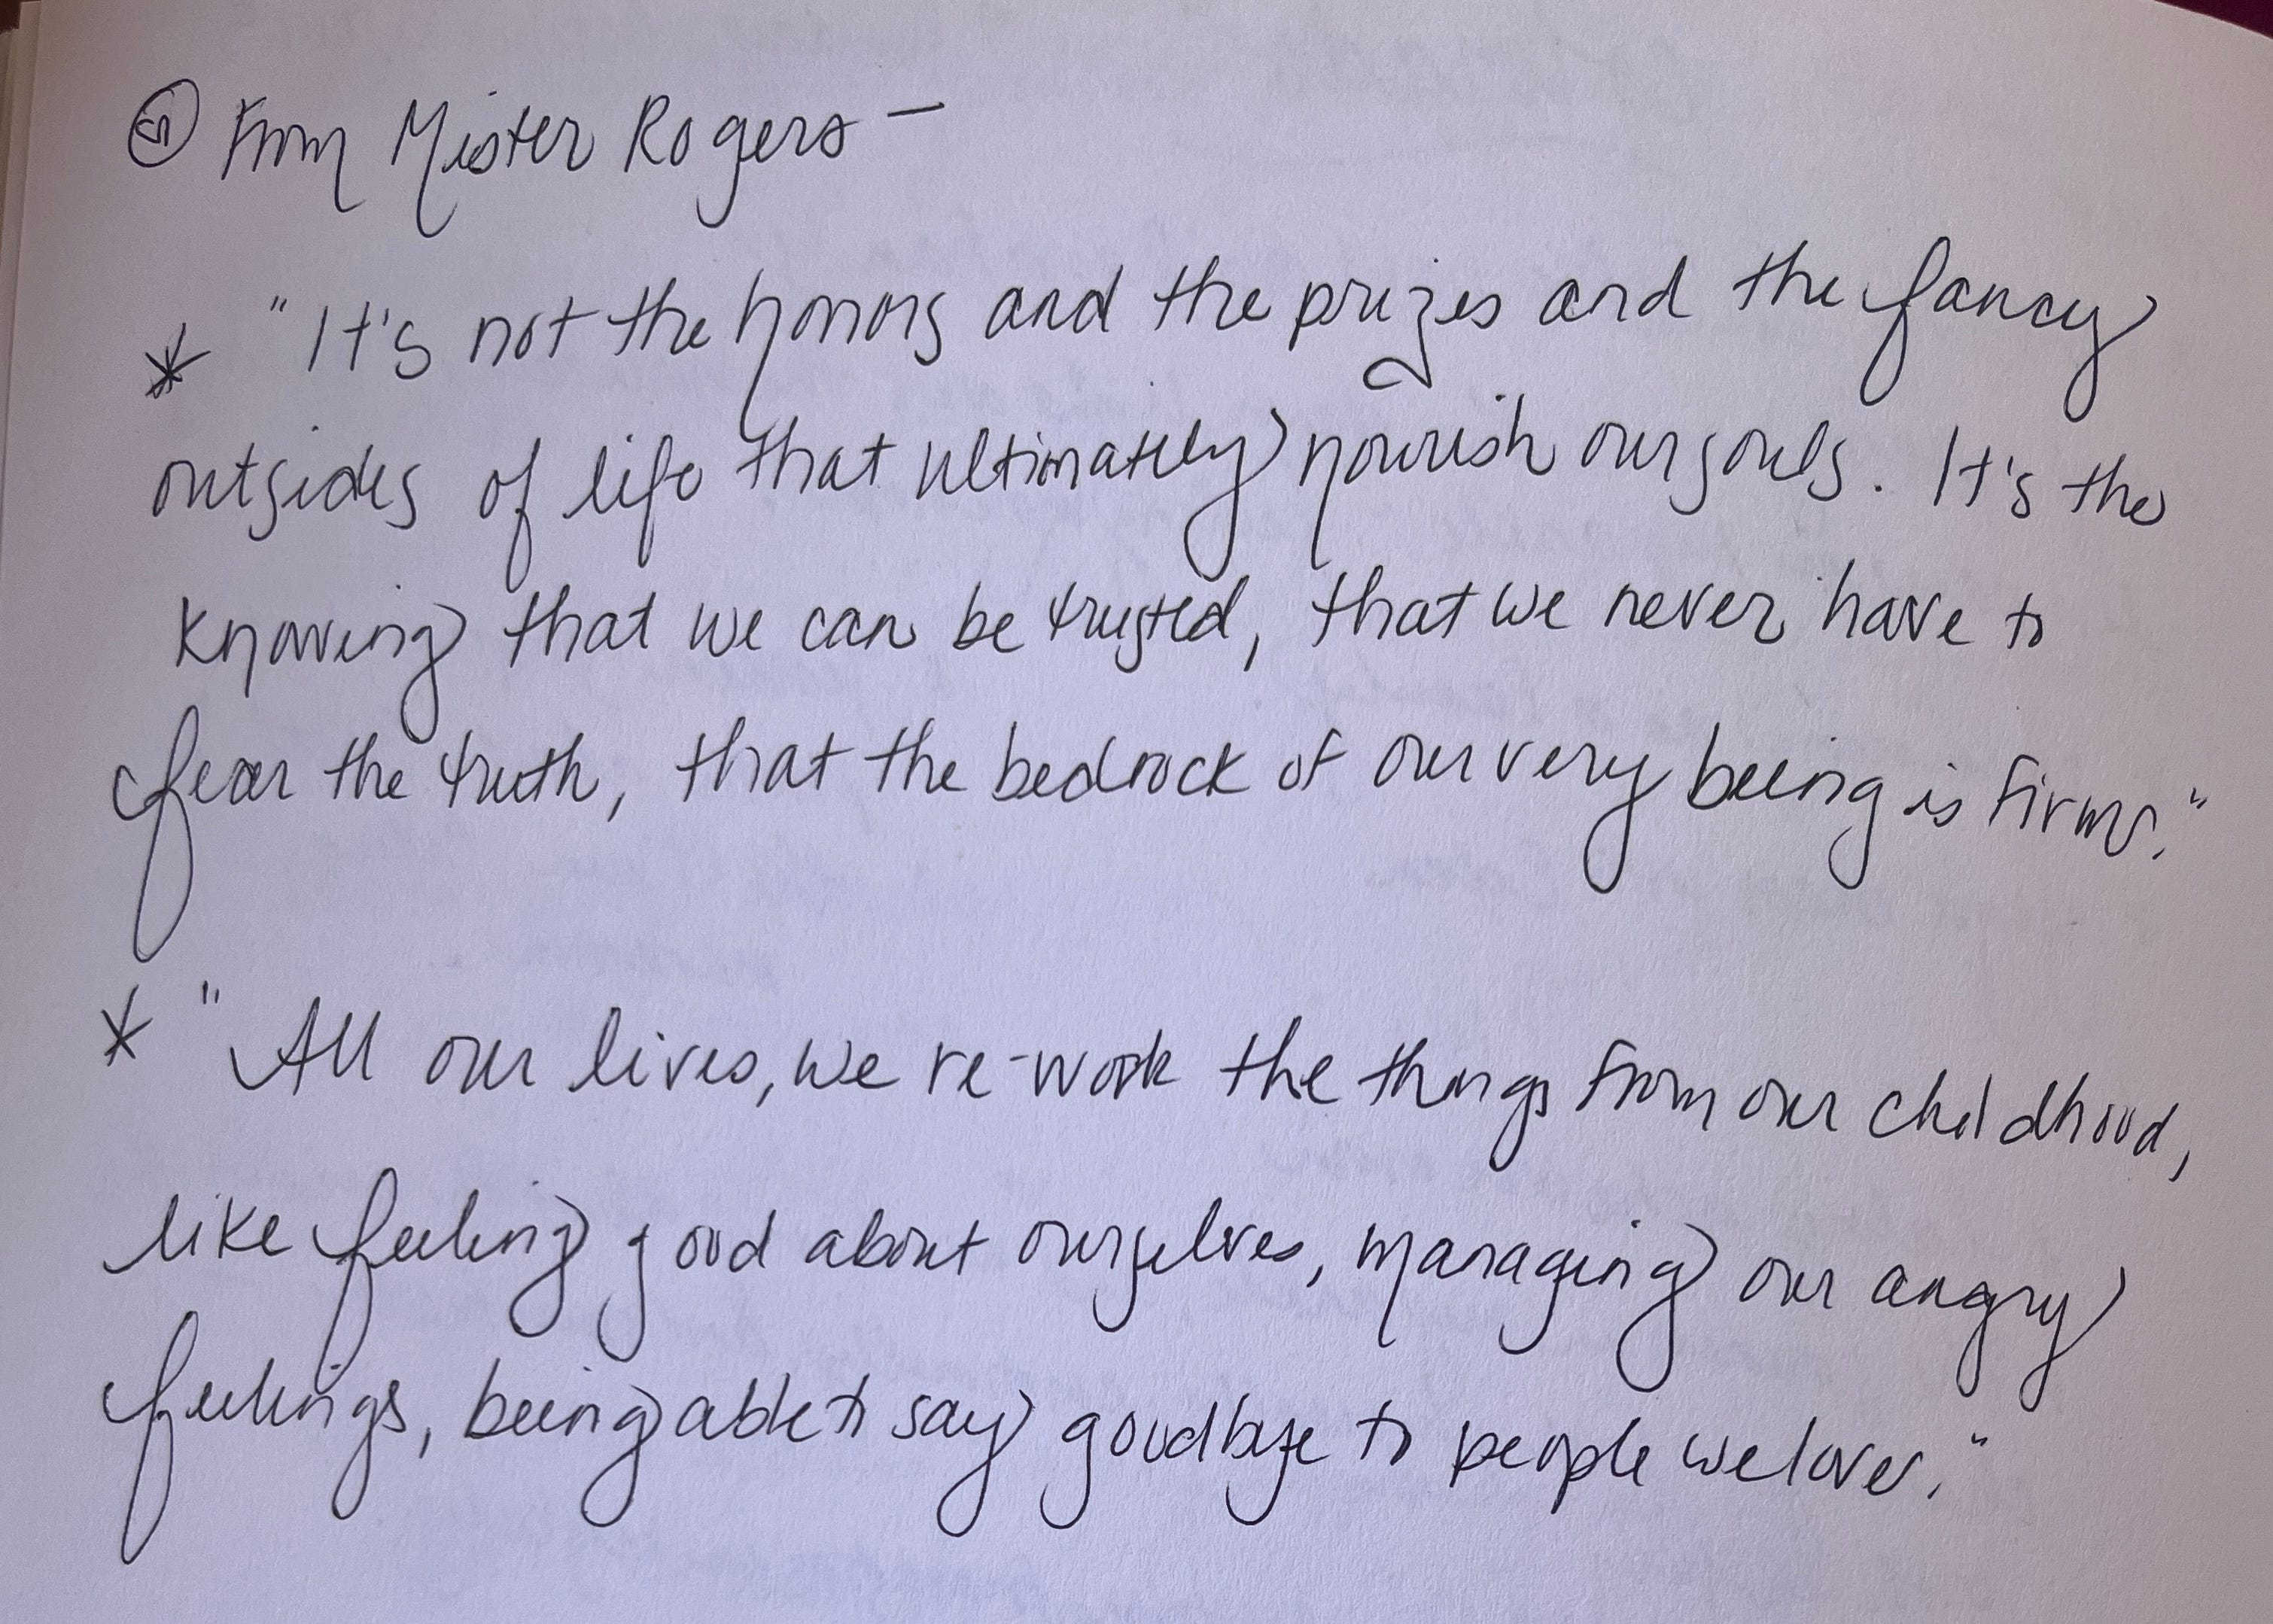 ⑤ From Mister Rogers —
* "It's not the honors and the prizes and the fancy
outsides of life that ultimately nourish our souls. It's the
knowing that we can be trusted, that we never have to
fear the truth, that the bedrock of our very being is firm."
* "All our lives, we re-work the things from our childhood,
like feeling good about ourselves, managing our angry
feelings, being able to say goodbye to people we love."